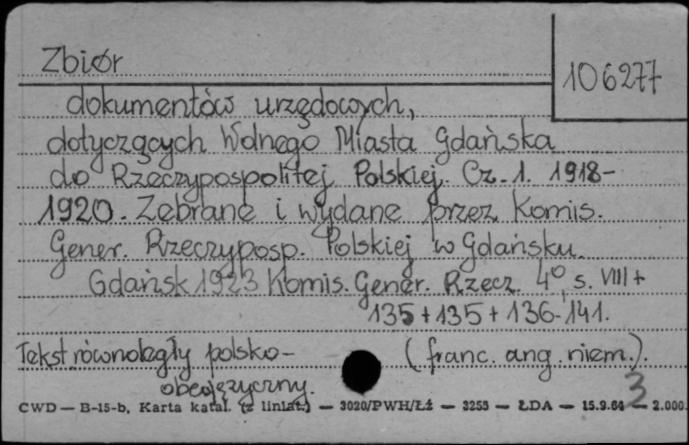 Zbiór
106277
dokumentów urzędowych,
dotyczących Wolnego Miasta Gdańska
do Rzeczypospolitej Polskiej. Cz. 1. 1918-
1920. Zebrane i wydane przez Komis.
Gener. Rzeczyposp. Polskiej w Gdańsku.
Gdańsk 1923 Komis. Gener. Rzecz. 4°, s. VIII +
135 + 135 + 136-141.
Tekst równoległy polsko- (franc. ang. niem.).
obcojęzyczny.
3
CWD — B-15-b, Karta katal. (z liniat.) — 3020/PWH/Łź — 3253 — ŁDA — 15.9.64 — 2.000